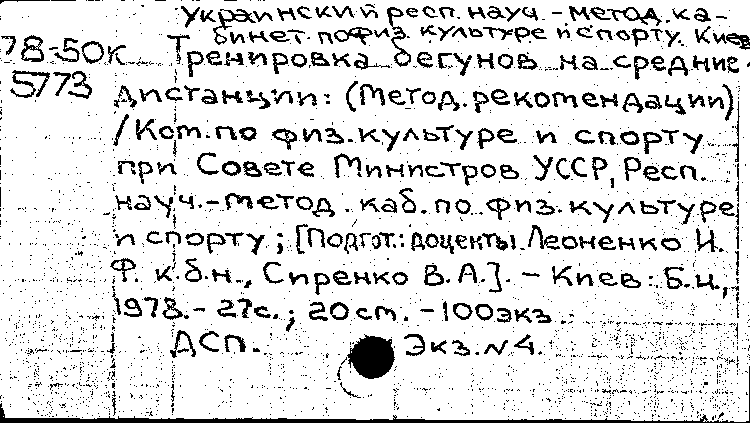 Украинский респ. науч.-метод. ка-
бинет по физ. культуре и спорту. Киев
78-50к Тренировка бегунов на средние
5773 дистанции: (Метод. рекомендации)
/Ком. по физ. культуре и спорту
при Совете Министров УССР, Респ.
науч.-метод. каб. по физ. культуре
и спорту; [Подгот.: доценты Леоненко И.
Ф. к.б.н., Сиренко В.А.]. - Киев: Б.и.,
1978. - 27с.; 20 см. - 100 экз.
ДСП. Экз. N 4.